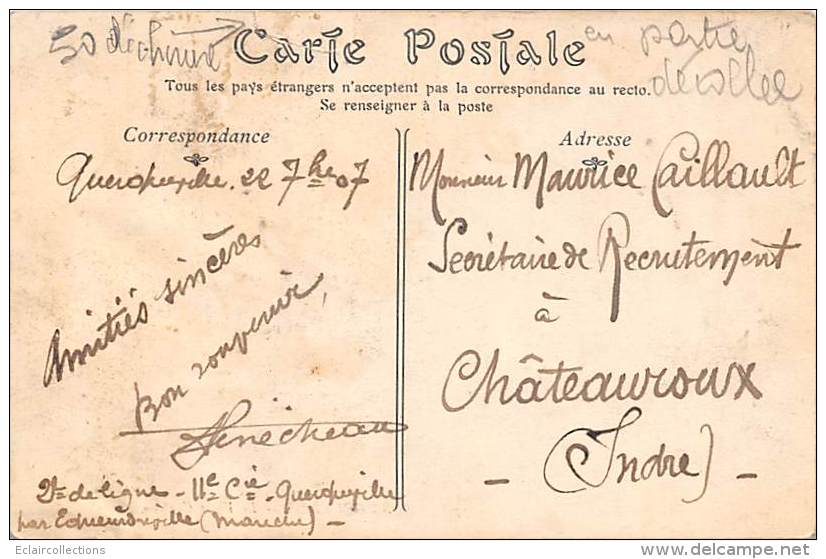 50 déchirure
en partie
décollée
Carte Postale
Tous les pays étrangers n'acceptent pas la correspondance au recto.
Se renseigner à la poste
Correspondance
Querqueville 22 7bre 07
Amitiés sincères
Bon souvenir,
Sénécheau
de Ligne - 11e Cie - Querqueville
par Equeurdreville (Manche) -
Adresse
Monsieur Maurice Caillault
Secrétaire de Recrutement
à
Châteauroux
- (Indre) -
© Eclaircollections
delcampe.net